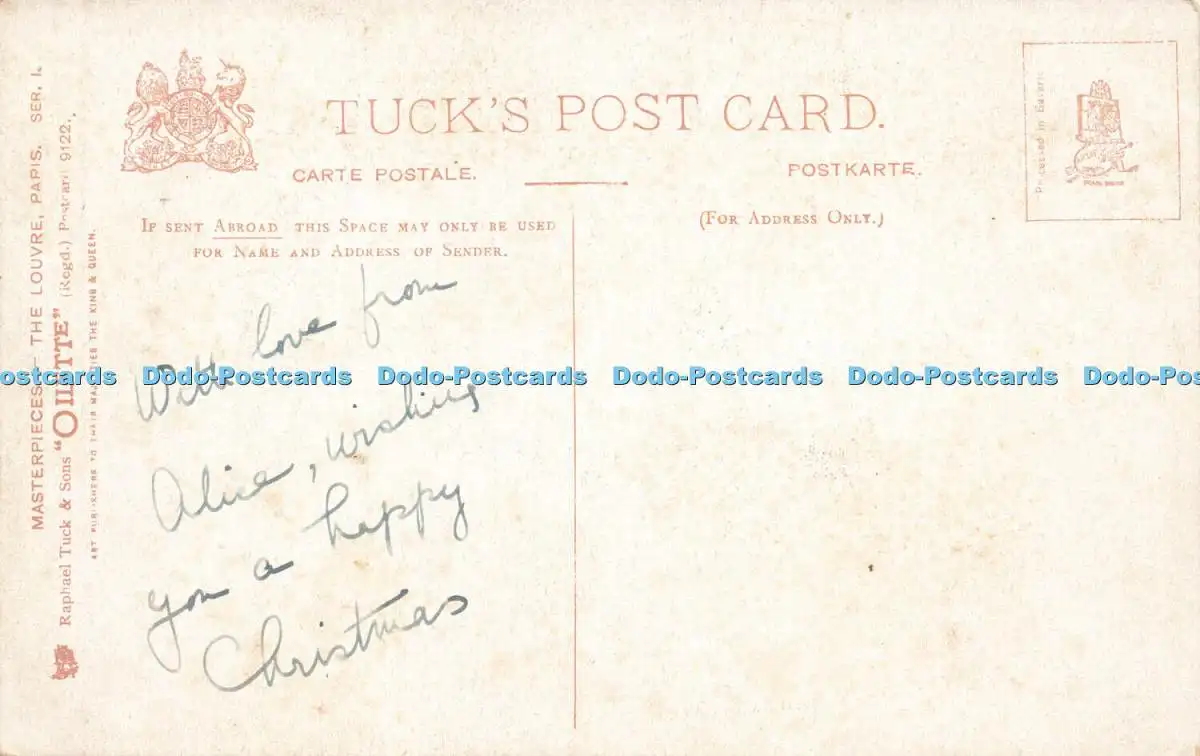 TUCK'S POST CARD.
CARTE POSTALE.
POSTKARTE.
IF SENT ABROAD THIS SPACE MAY ONLY BE USED
FOR NAME AND ADDRESS OF SENDER.
(FOR ADDRESS ONLY.)
With love from
Alice, wishing
you a happy
Christmas
MASTERPIECES— THE LOUVRE, PARIS. SER. I.
Raphael Tuck & Sons "OILETTE" (Regd.) Postcard 9122.
ART PUBLISHERS TO THEIR MAJESTIES THE KING & QUEEN.
Processed in Bavaria
ostcards Dodo-Postcards Dodo-Postcards Dodo-Postcards Dodo-Postcards Dodo-Po